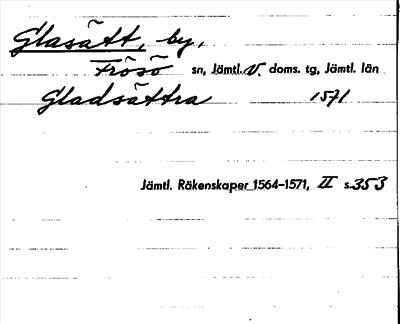 Glasätt, by,
Frösö sn, Jämtl. V. doms. tg, Jämtl. län
Gladsättra 1571
Jämtl. Räkenskaper 1564-1571, II s. 353